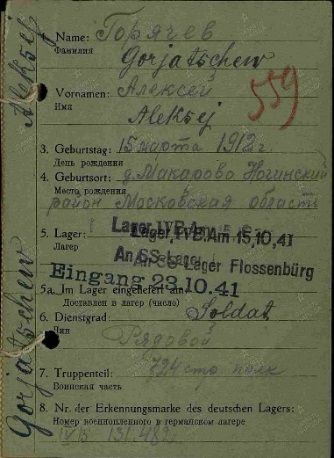 Gorjatschew Aleksej
1. Name: Горячев
Фамилия Gorjatschew
Vornamen: Алексей
Имя Aleksej
559
3. Geburtstag: 15 марта 1912 г.
День рождения
4. Geburtsort: д. Макарово Ногинский
Место рождения
район Московская область
5. Lager: Lager IV B. Am 15.10.41
Лагерь An SS-Lager Flossenbürg
Eingang 22.10.41
5a. Im Lager eingeliefert am:
Доставлен в лагерь (число)
6. Dienstgrad: Soldat
Чин Рядовой
7. Truppenteil: 724 стр полк
Воинская часть
8. Nr. der Erkennungsmarke des deutschen Lagers:
Номер военнопленного в германском лагере
IV B